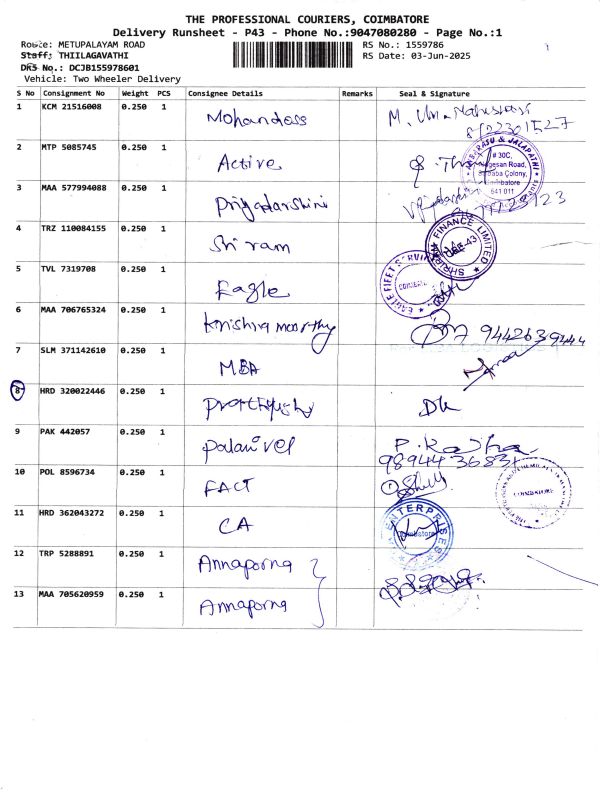 THE PROFESSIONAL COURIERS, COIMBATORE
Delivery Runsheet - P43 - Phone No.:9047080280 - Page No.:1
Route: METUPALAYAM ROAD RS No.: 1559786
Staff: THIILAGAVATHI RS Date: 03-Jun-2025
DRS No.: DCJB155978601
Vehicle: Two Wheeler Delivery
S No Consignment No Weight PCS Consignee Details Remarks Seal & Signature
1 KCM 21516008 0.250 1 Mohandoss M.
2 MTP 5085745 0.250 1 Active
# 30C,
Colony,
Coimbatore
641 011
3 MAA 577994088 0.250 1 Priyadarshini
4 TRZ 110084155 0.250 1 Sri ram
FINANCE LIMITED
5 TVL 7319708 0.250 1 Eagle
EAGLE FLEET SERVI
6 MAA 706765324 0.250 1 Krishna moorthy 9442639444
7 SLM 371142610 0.250 1 MBA
8 HRD 320022446 0.250 1
9 PAK 442057 0.250 1 Palanivel P. Radha
10 POL 8596734 0.250 1 FACT
COIMBATORE
11 HRD 362043272 0.250 1 CA
ENTERPRISES
Coimbatore
12 TRP 5288891 0.250 1 Annaporna
13 MAA 705620959 0.250 1 Annaporna